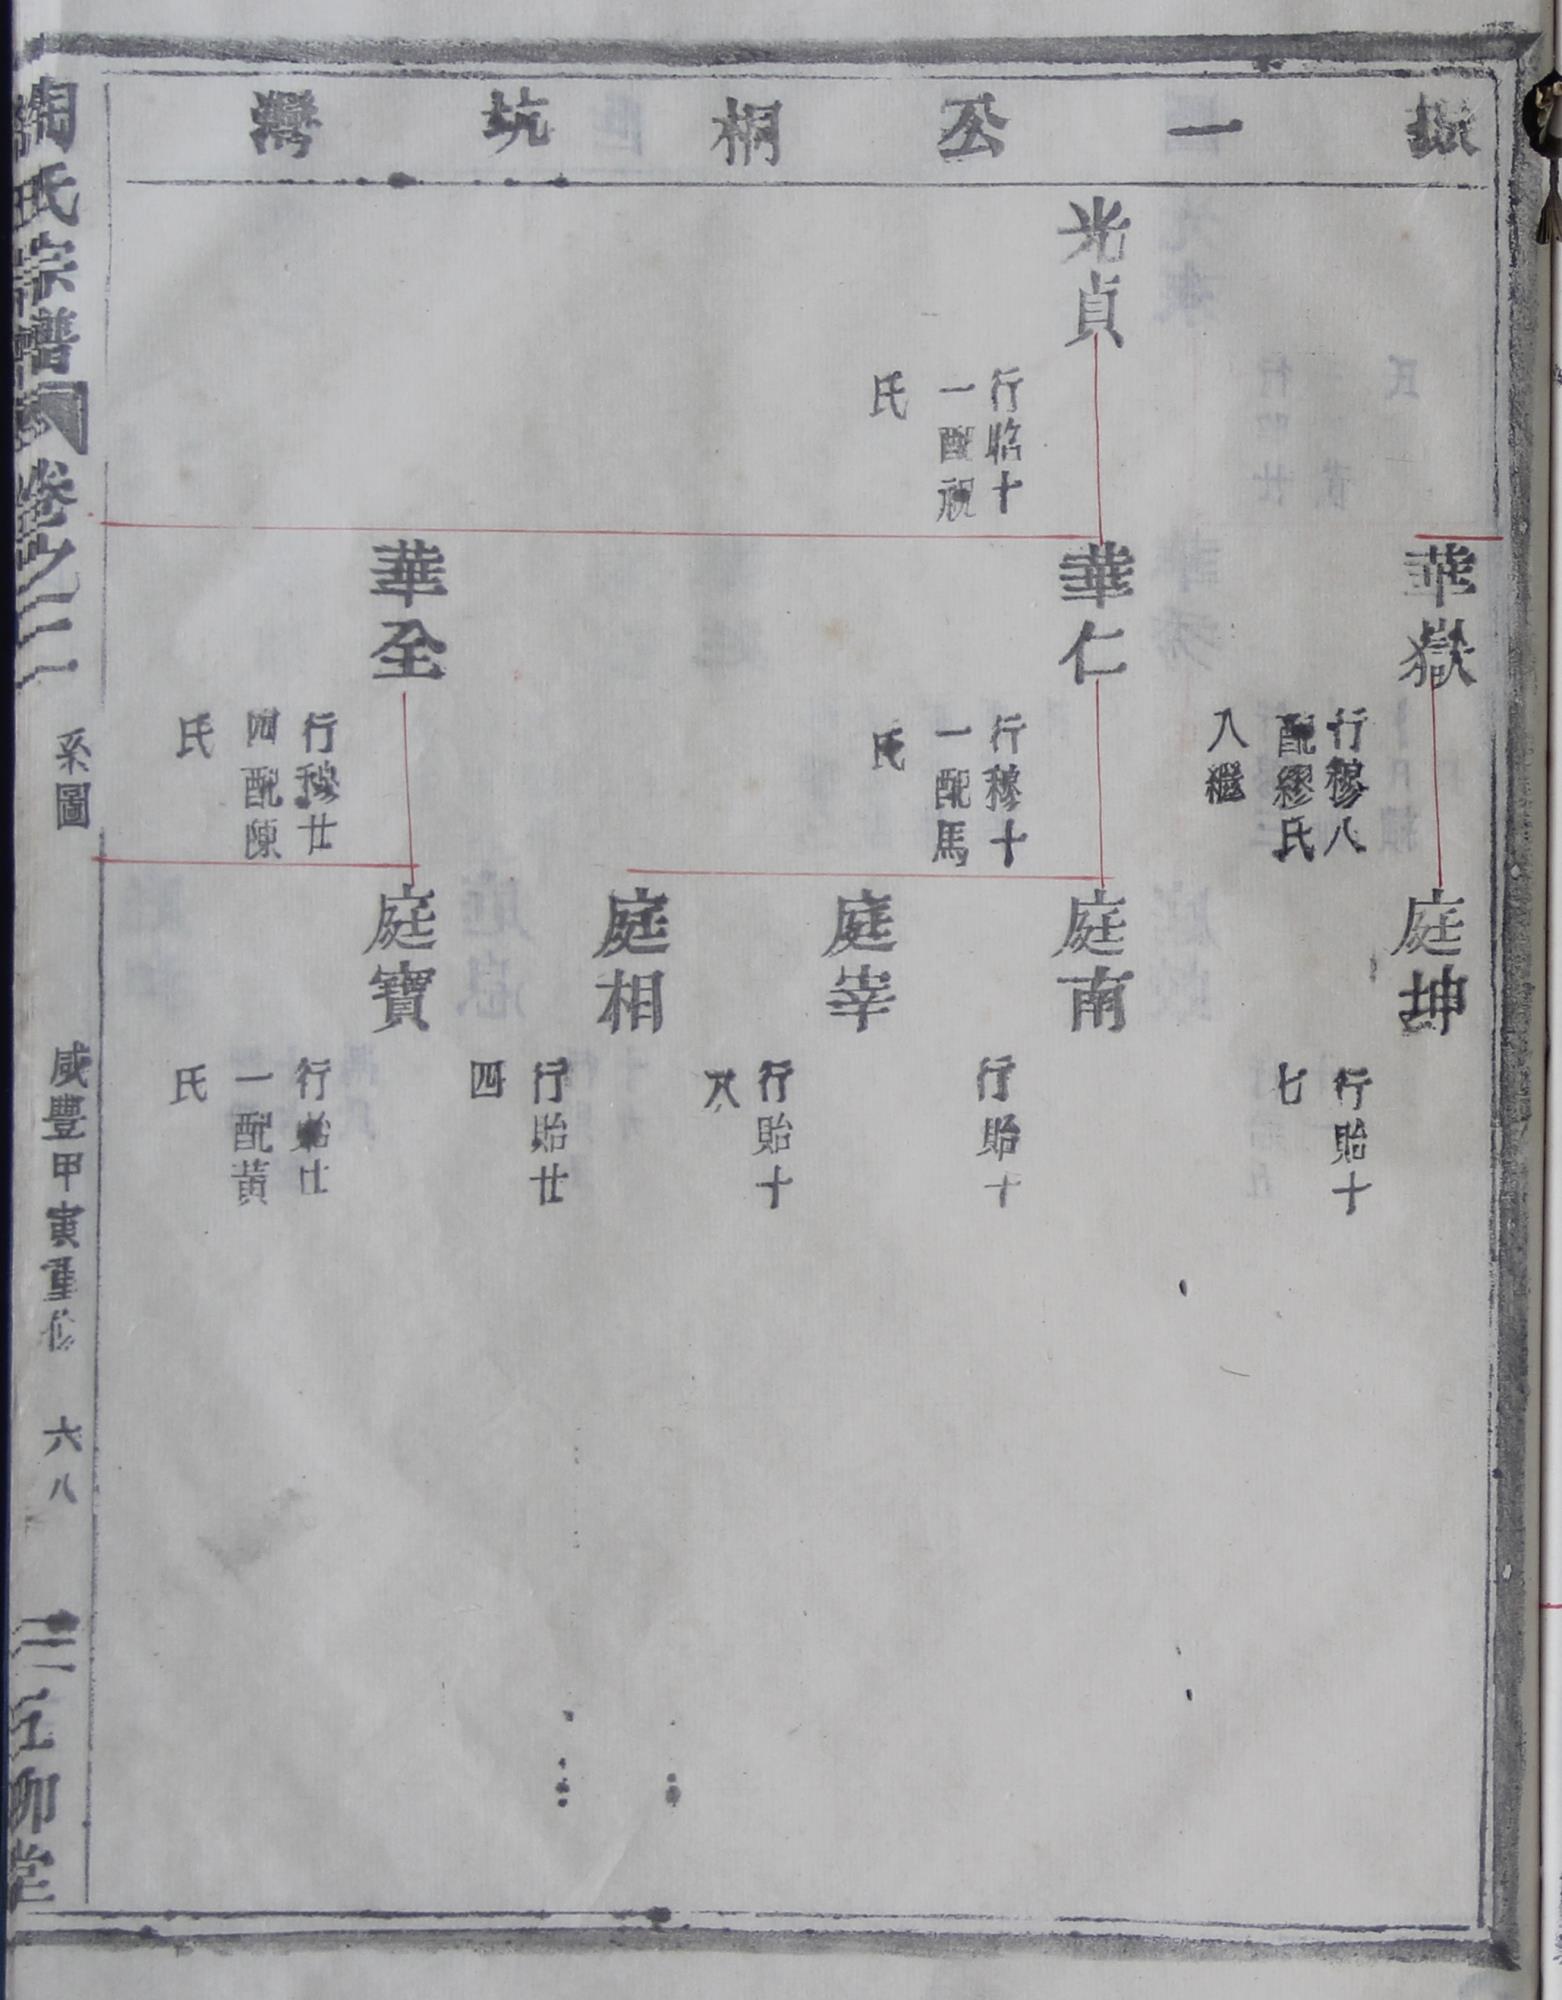 嶽一公桐坑灣
光貞
行臨十
一配祝
氏
華嶽
行穆八
配繆氏
入繼
華仁
行穆十
一配馬
氏
華全
行穆廿
四配陳
氏
庭坤
行貽十
七
庭南
行貽十
庭宰
行貽十
八
庭相
行貽廿
四
庭寶
行貽廿
一配黃
氏
陶氏宗譜
卷之二
系圖
咸豐甲寅重修
六八
五柳堂